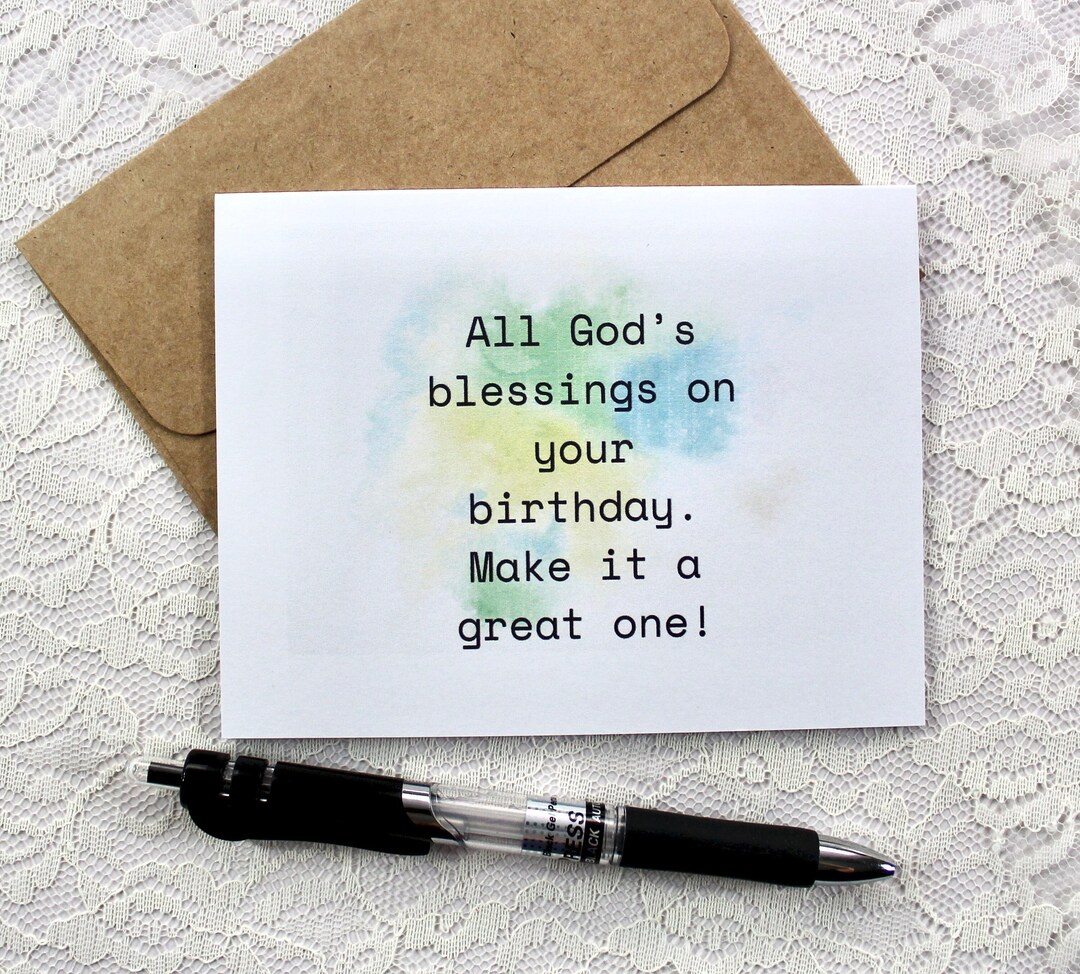 All God’s
blessings on
your
birthday.
Make it a
great one!